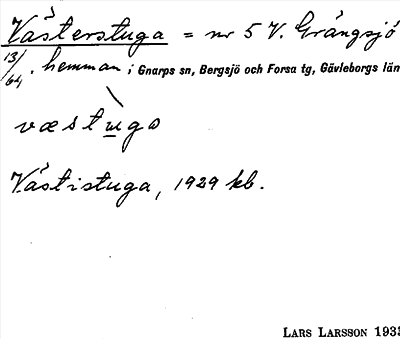 Västerstuga = nr 5 V. Grängsjö
13/64, hemman; Gnarps sn, Bergsjö och Forsa tg, Gävleborgs län
væstuga
Västistuga, 1929 kb.
LARS LARSSON 1933